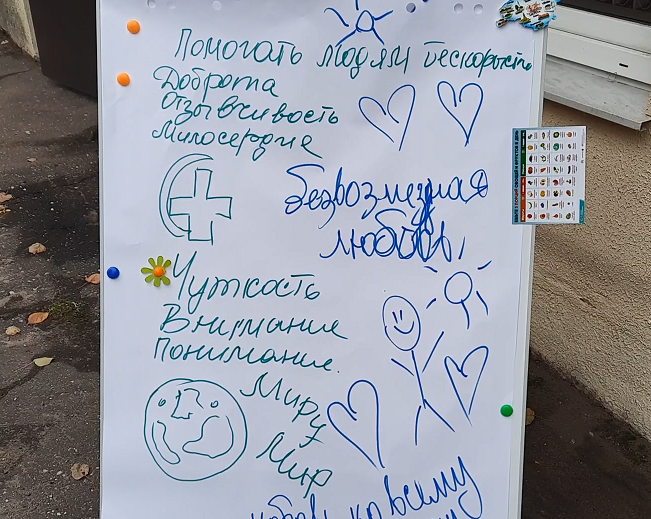 Помогать людям бескорыстно
Доброта
Отзывчивость
Милосердие
безвозмездная
любовь,
Чуткость
Внимание
Понимание.
Миру
Мир
ко всему